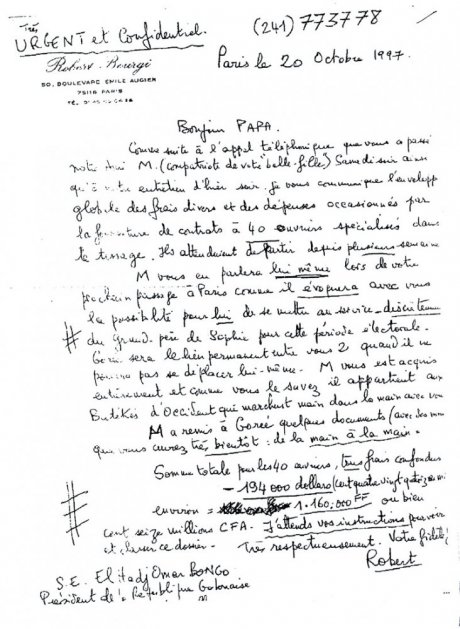 Très (241) 773778
URGENT et Confidentiel.
Robert Bourgi
50, BOULEVARD EMILE AUGIER
75116 PARIS
Paris le 20 Octobre 1997.
Bonjour PAPA.
Comme suite à l'appel téléphonique que vous a passé
notre ami M. (compatriote de votre "belle-fille") Samedi soir ainsi
qu'à votre entretien d'hier soir. Je vous communique l'enveloppe
globale des frais divers et des dépenses occasionnés par
la fourniture de contrats à 40 ouvriers spécialisés dans
le tissage. Ils attendaient de partir depuis plusieurs semaines
M vous en parlera lui même lors de votre
prochain passage à Paris comme il évoquera avec vous
la possibilité pour lui de se mettre au service discrètement
du grand-père de Sophie pour cette période électorale.
sera le lien permanent entre vous 2 quand il ne
pourra pas se déplacer lui-même. M vous est acquis
entièrement et comme vous le savez il appartient aux
d'Occident qui marchent main dans la main avec vous
M a remis à quelques documents (avec des noms
que vous verrez très bientôt : de la main à la main.
Somme totale pour les 40 ouvriers, tous frais confondus
- 194 000 dollars (cent quatre vingt quatorze mi
environ = 1.160.000 FF ou bien
cent seize millions CFA. J'attends vos instructions pour
et classer ce dossier. Très respectueusement. Votre fidèle
Robert
S.E. El Hadj Omar BONGO
Président de la République Gabonaise